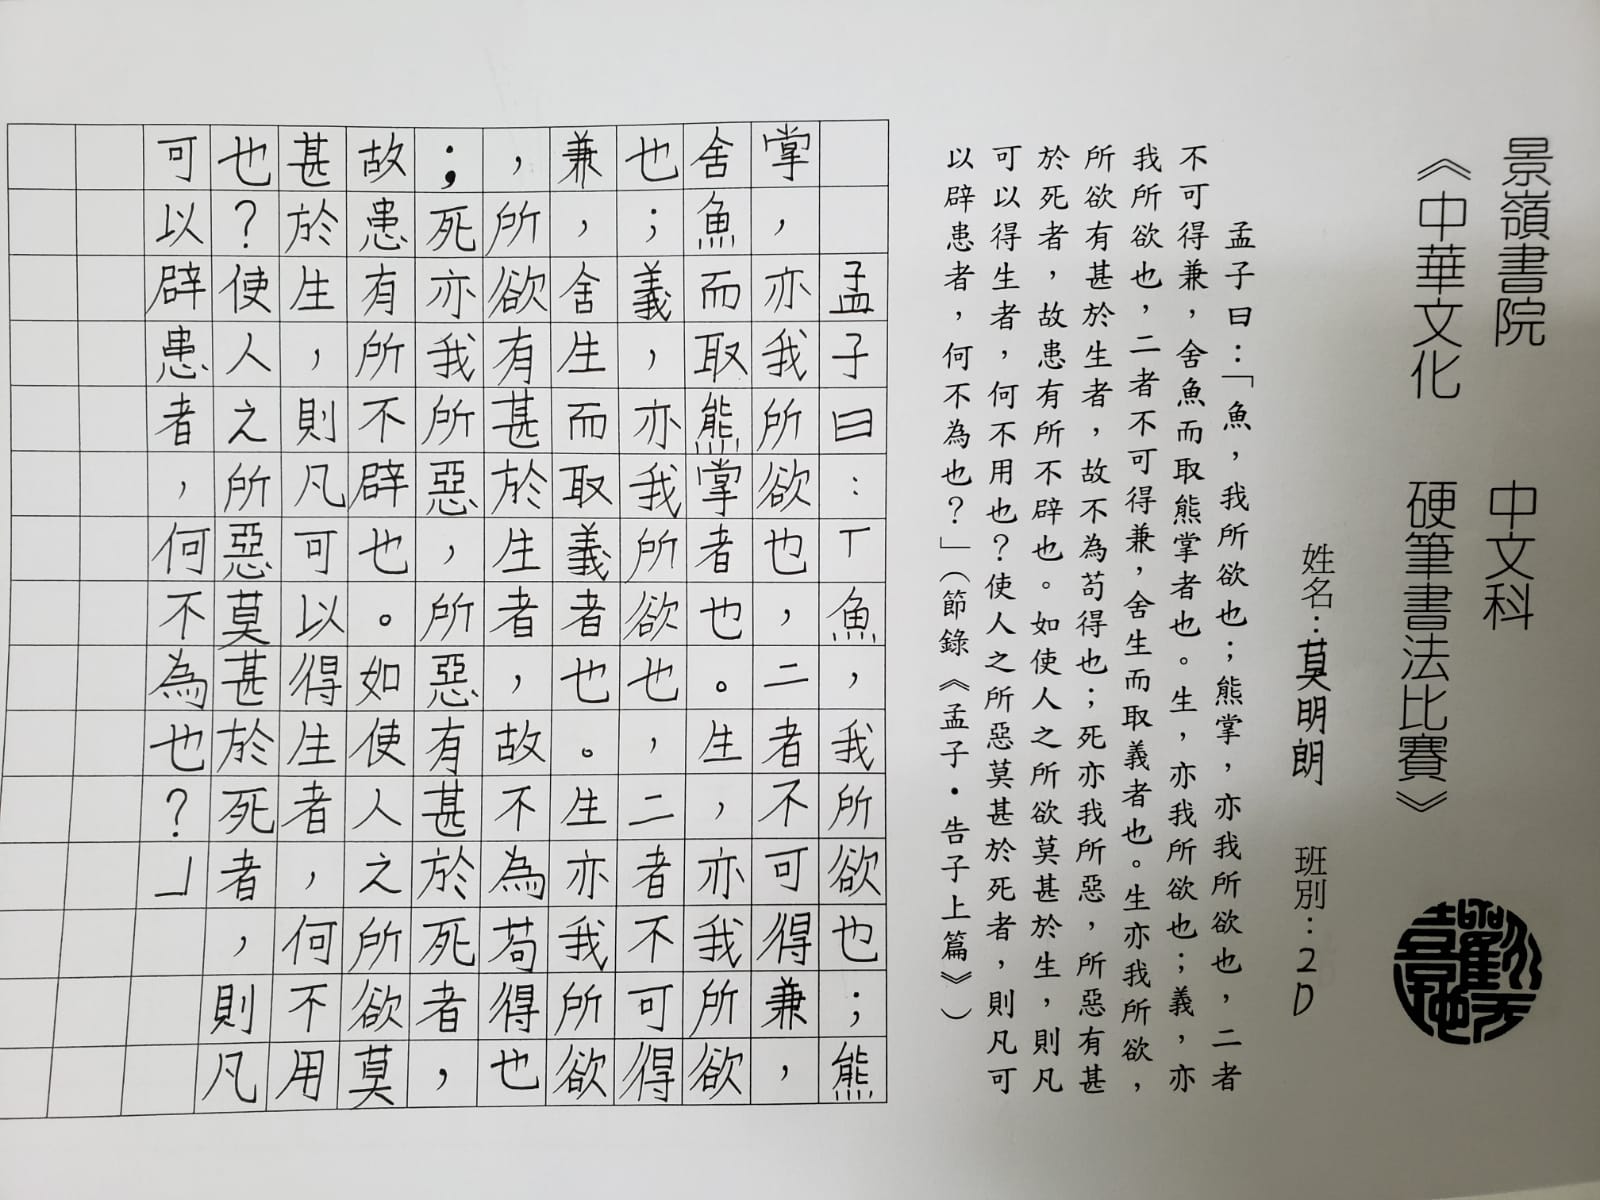 景嶺書院 中文科
《中華文化 硬筆書法比賽》
姓名：莫明朗 班別：2D
孟子曰：「魚，我所欲也；熊掌，亦我所欲也，二者
不可得兼，舍魚而取熊掌者也。生，亦我所欲也；義，亦
我所欲也，二者不可得兼，舍生而取義者也。生亦我所欲，
所欲有甚於生者，故不為苟得也；死亦我所惡，所惡有甚
於死者，故患有所不辟也。如使人之所欲莫甚於生，則凡
可以得生者，何不用也？使人之所惡莫甚於死者，則凡可
以辟患者，何不為也？」（節錄《孟子·告子上篇》）
孟子曰：「魚，我所欲也；熊
掌，亦我所欲也，二者不可得兼，
舍魚而取熊掌者也。生，亦我所欲
也；義，亦我所欲也，二者不可得
兼，舍生而取義者也。生亦我所欲
，所欲有甚於生者，故不為苟得也
；死亦我所惡，所惡有甚於死者，
故患有所不辟也。如使人之所欲莫
甚於生，則凡可以得生者，何不用
也？使人之所惡莫甚於死者，則凡
可以辟患者，何不為也？」